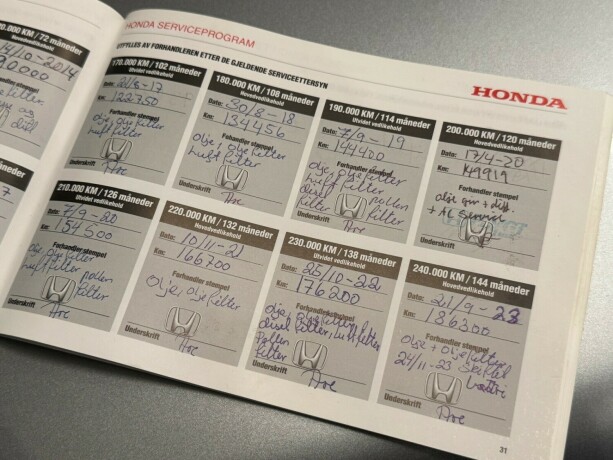 HONDA SERVICEPROGRAM
UTFYLLES AV FORHANDLEREN ETTER DE GJELDENDE SERVICEETTERSYN
HONDA
20.000 KM / 72 måneder
Hovedvedlikehold
14/10-2014
90000
170.000 KM / 102 måneder
Utvidet vedlikehold
Dato: 21/8-17
Km: 122750
Forhandler stempel
olje, oljefilter
luftfilter
Underskrift
Are
180.000 KM / 108 måneder
Hovedvedlikehold
Dato: 30/8-18
Km: 134456
Forhandler stempel
olje, oljefilter
luftfilter
Underskrift
Are
190.000 KM / 114 måneder
Utvidet vedlikehold
Dato: 7/9-19
Km: 144400
Forhandler stempel
olje, oljefilter
luftfilter
diesel pollen
filter filter
Underskrift
Are
200.000 KM / 120 måneder
Hovedvedlikehold
Dato: 17/4-20
Km:
Forhandler stempel
olje gir + diff.
+ AC service
Underskrift
210.000 KM / 126 måneder
Utvidet vedlikehold
Dato: 7/9-20
Km: 154500
Forhandler stempel
olje, oljefilter
luftfilter pollen
filter
Underskrift
Are
220.000 KM / 132 måneder
Hovedvedlikehold
Dato: 10/11-21
Km: 166700
Forhandler stempel
Olje, oljefilter
Underskrift
Are
230.000 KM / 138 måneder
Utvidet vedlikehold
Dato: 25/10-22
Km: 176200
Forhandler stempel
olje, oljefilter
diesel filter, luftfilter
Pollen
filter
Underskrift
Are
240.000 KM / 144 måneder
Hovedvedlikehold
Dato: 21/9-23
Km: 186300
Forhandler stempel
olje + oljefilter
24/11-23 skiftet
Underskrift
Are
31